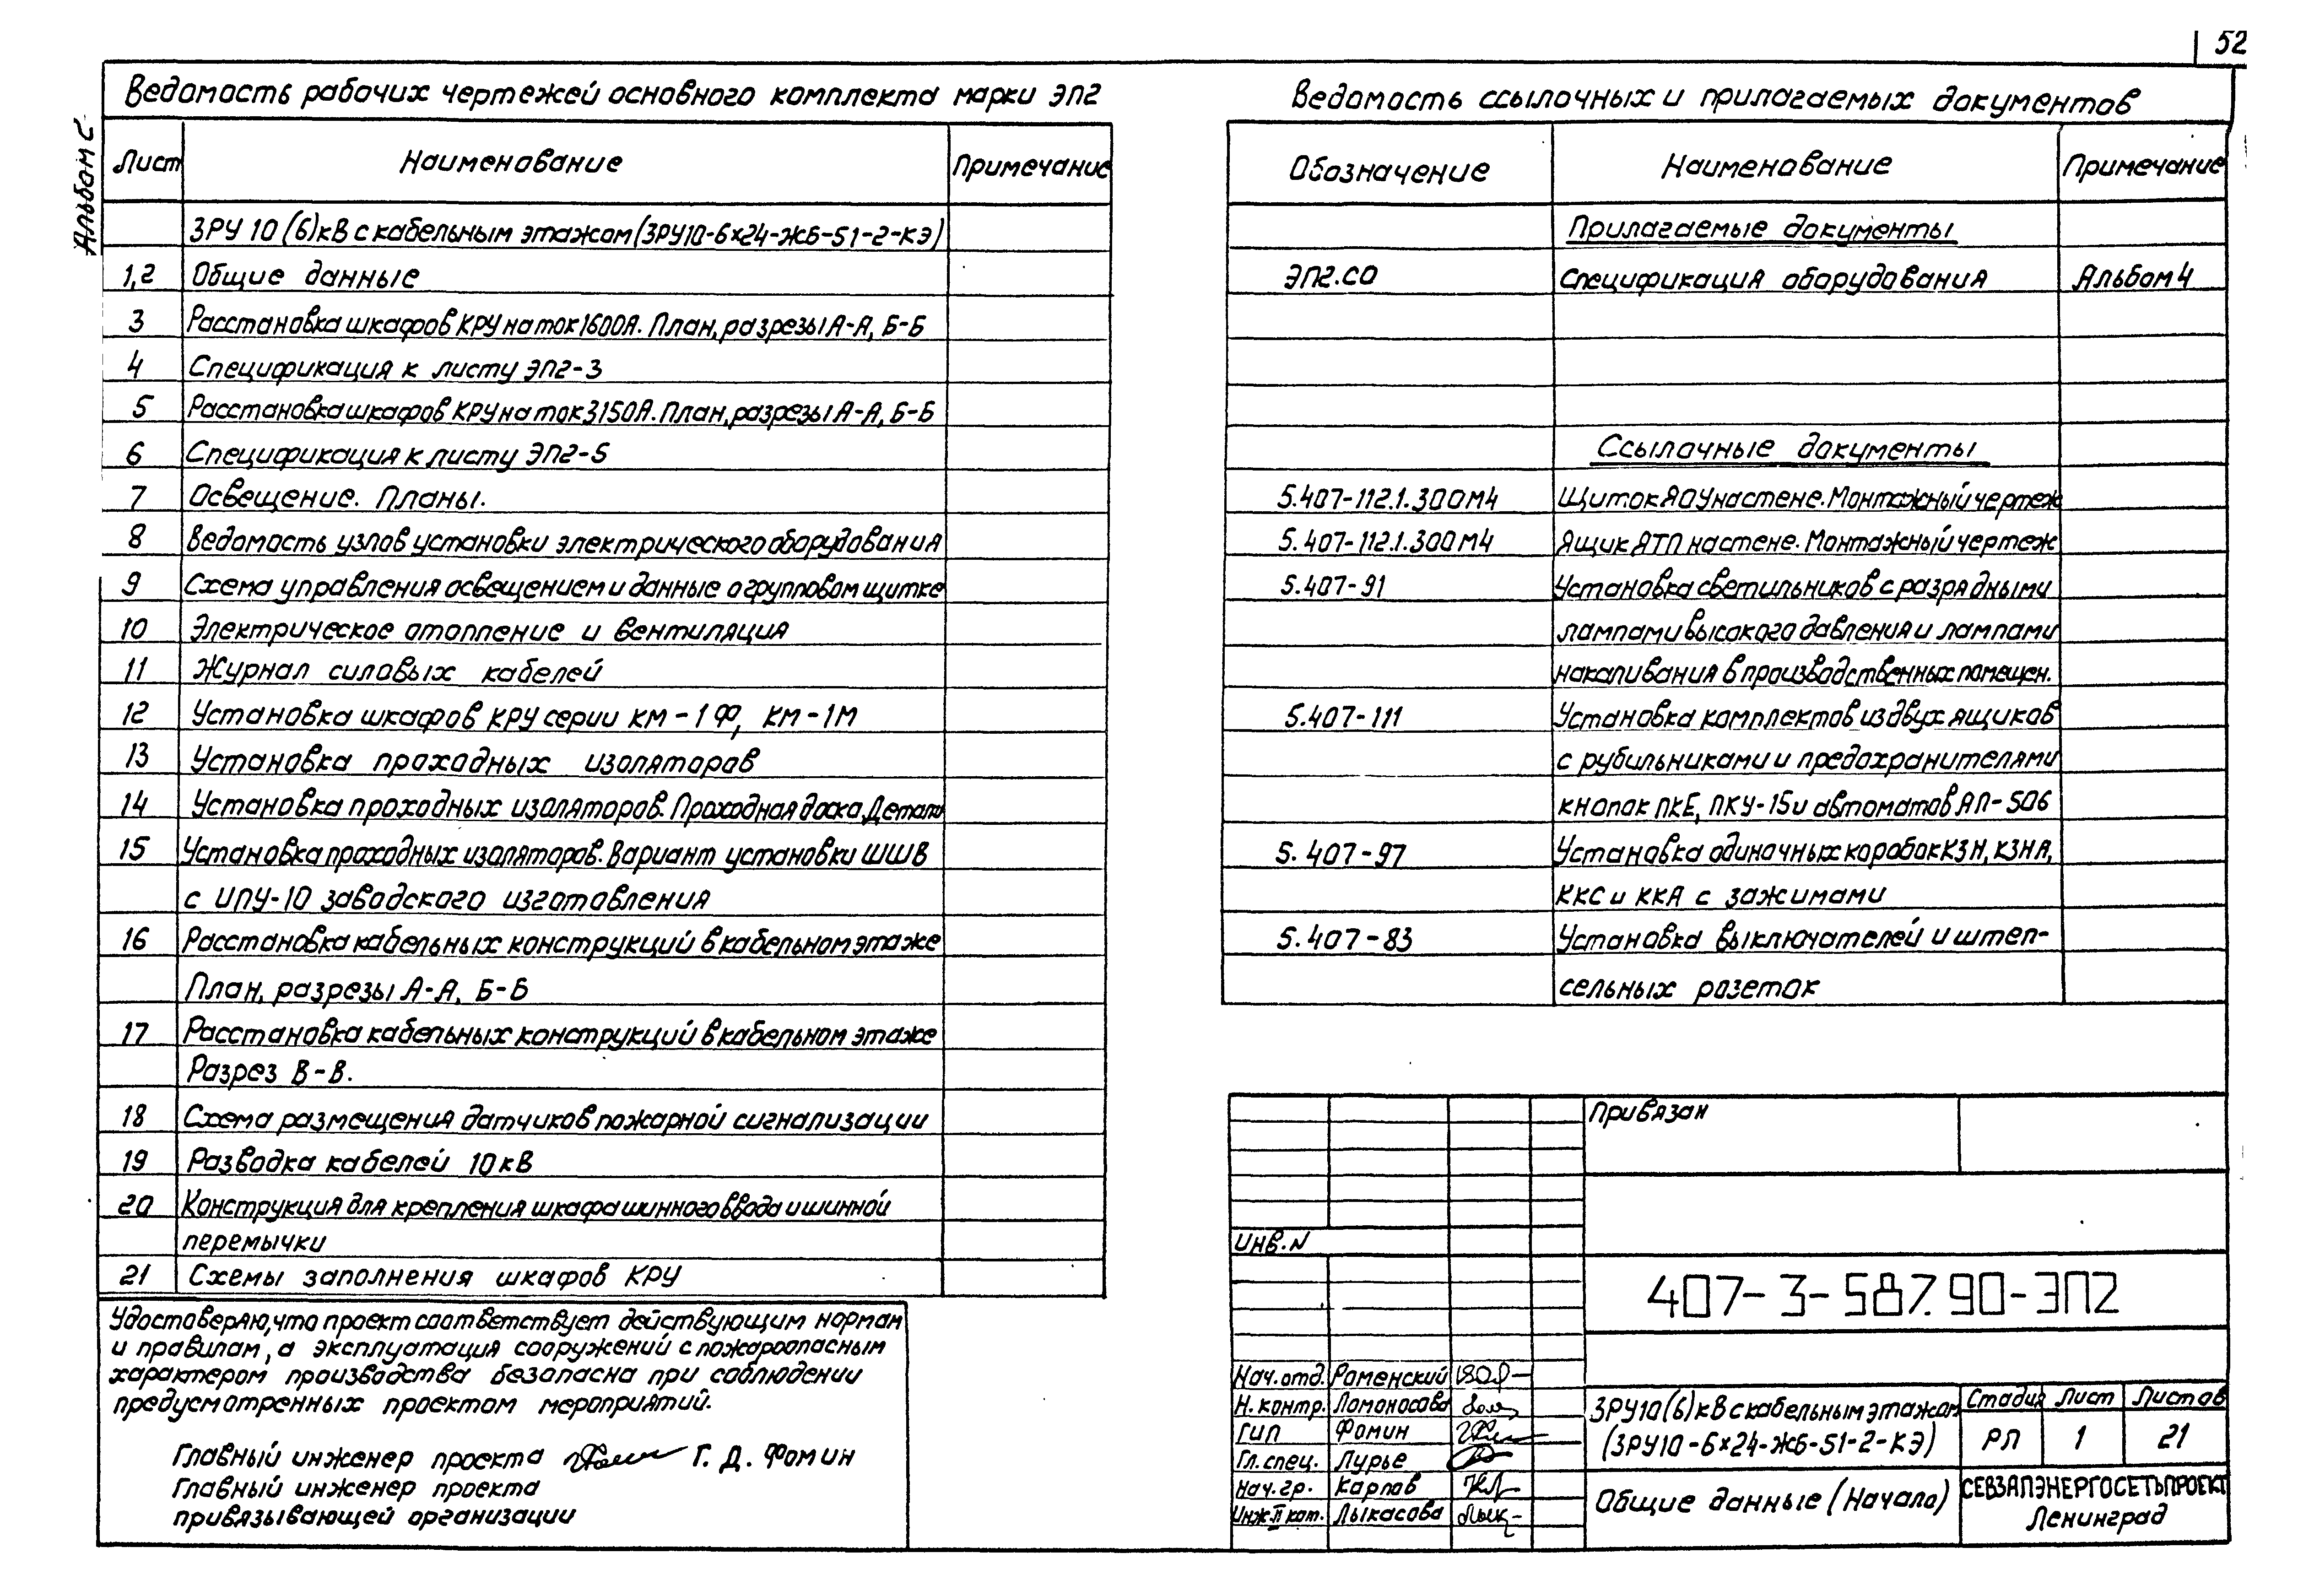 52
Альбом С
Ведомость рабочих чертежей основного комплекта марки ЭП2
Лист Наименование Примечание
ЗРУ 10 (6) кВ с кабельным этажом (ЗРУ10-6×24-ЖБ-S1-2-КЭ)
1,2 Общие данные
3 Расстановка шкафов КРУ на ток 1600А. План, разрезы А-А, Б-Б
4 Спецификация к листу ЭП2-3
5 Расстановка шкафов КРУ на ток 3150А. План, разрезы А-А, Б-Б
6 Спецификация к листу ЭП2-5
7 Освещение. Планы.
8 Ведомость узлов установки электрического оборудования
9 Схема управления освещением и данные о групповом щитке
10 Электрическое отопление и вентиляция
11 Журнал силовых кабелей
12 Установка шкафов КРУ серии КМ-1Ф, КМ-1М
13 Установка проходных изоляторов
14 Установка проходных изоляторов. Проходная доска. Детали
15 Установка проходных изоляторов. Вариант установки ШШВ
с ИПУ-10 заводского изготовления
16 Расстановка кабельных конструкций в кабельном этаже
План, разрезы А-А, Б-Б
17 Расстановка кабельных конструкций в кабельном этаже
Разрез В-В.
18 Схема размещения датчиков пожарной сигнализации
19 Разводка кабелей 10 кВ
20 Конструкция для крепления шкафа шинного ввода и шинной
перемычки
21 Схемы заполнения шкафов КРУ
Удостоверяю, что проект соответствует действующим нормам
и правилам, а эксплуатация сооружений с пожароопасным
характером производства безопасна при соблюдении
предусмотренных проектом мероприятий.
Главный инженер проекта Г. Д. Фомин
Главный инженер проекта
привязывающей организации
Ведомость ссылочных и прилагаемых документов
Обозначение Наименование Примечание
Прилагаемые документы
ЭП2.СО Спецификация оборудования Альбом 4
Ссылочные документы
5.407-112.1.300М4 Щиток ЯОУ на стене. Монтажный чертеж
5.407-112.1.300М4 Ящик ЯТП на стене. Монтажный чертеж
5.407-91 Установка светильников с разрядными
лампами высокого давления и лампами
накаливания в производственных помещен.
5.407-111 Установка комплектов из двух ящиков
с рубильниками и предохранителями
кнопок ПКЕ, ПКУ-15 и автоматов АП-50Б
5.407-97 Установка одиночных коробок КЗН, КЗНА,
ККС и ККА с зажимами
5.407-83 Установка выключателей и штеп-
сельных розеток
Привязан
Инв. N
407-3-587.90-ЭП2
Нач. отд. Роменский
Н. контр. Ломоносова
ГИП Фомин
Гл. спец. Лурье
Нач. гр. Карпов
Инж. II кат. Лыкасова
ЗРУ10(6) кВ с кабельным этажом
(ЗРУ10-6×24-ЖБ-S1-2-КЭ)
Стадия Лист Листов
РП 1 21
Общие данные (Начало)
СЕВЗАПЭНЕРГОСЕТЬПРОЕКТ
Ленинград